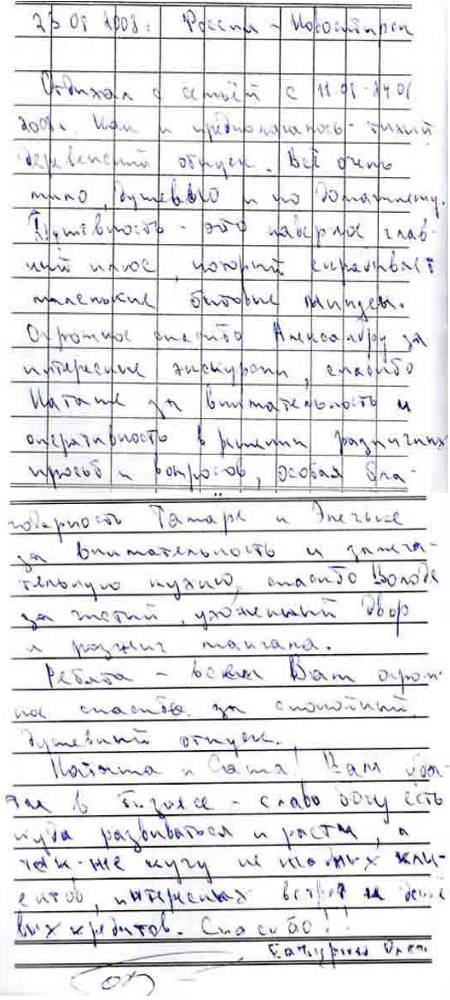 23 01 2008г. Россия - Новосибирск
Отдыхал с семьёй с 11.01-24.01
2008г. Как и предполагалось - тихий
деревенский отпуск. Всё очень
мило, душевно и по домашнему.
Душевность - это наверное глав-
ный плюс, который скрадывает
маленькие бытовые минусы.
Огромное спасибо Александру за
интересные экскурсии, спасибо
Наташе за внимательность и
оперативность в решении различных
просьб и вопросов, особая бла-
годарность Тамаре и Энечке
за внимательность и замеча-
тельную кухню, спасибо Володе
за чистый, ухоженный двор
и розжиг мангала.
Ребята - всем Вам огром-
ное спасибо за спокойный,
душевный отпуск.
Наташа и Саша! Вам уда-
чи в бизнесе - слава богу есть
куда развиваться и расти, а
так-же кучу не жадных кли-
ентов, интересных встреч и дешё
вых кредитов. Спасибо!!